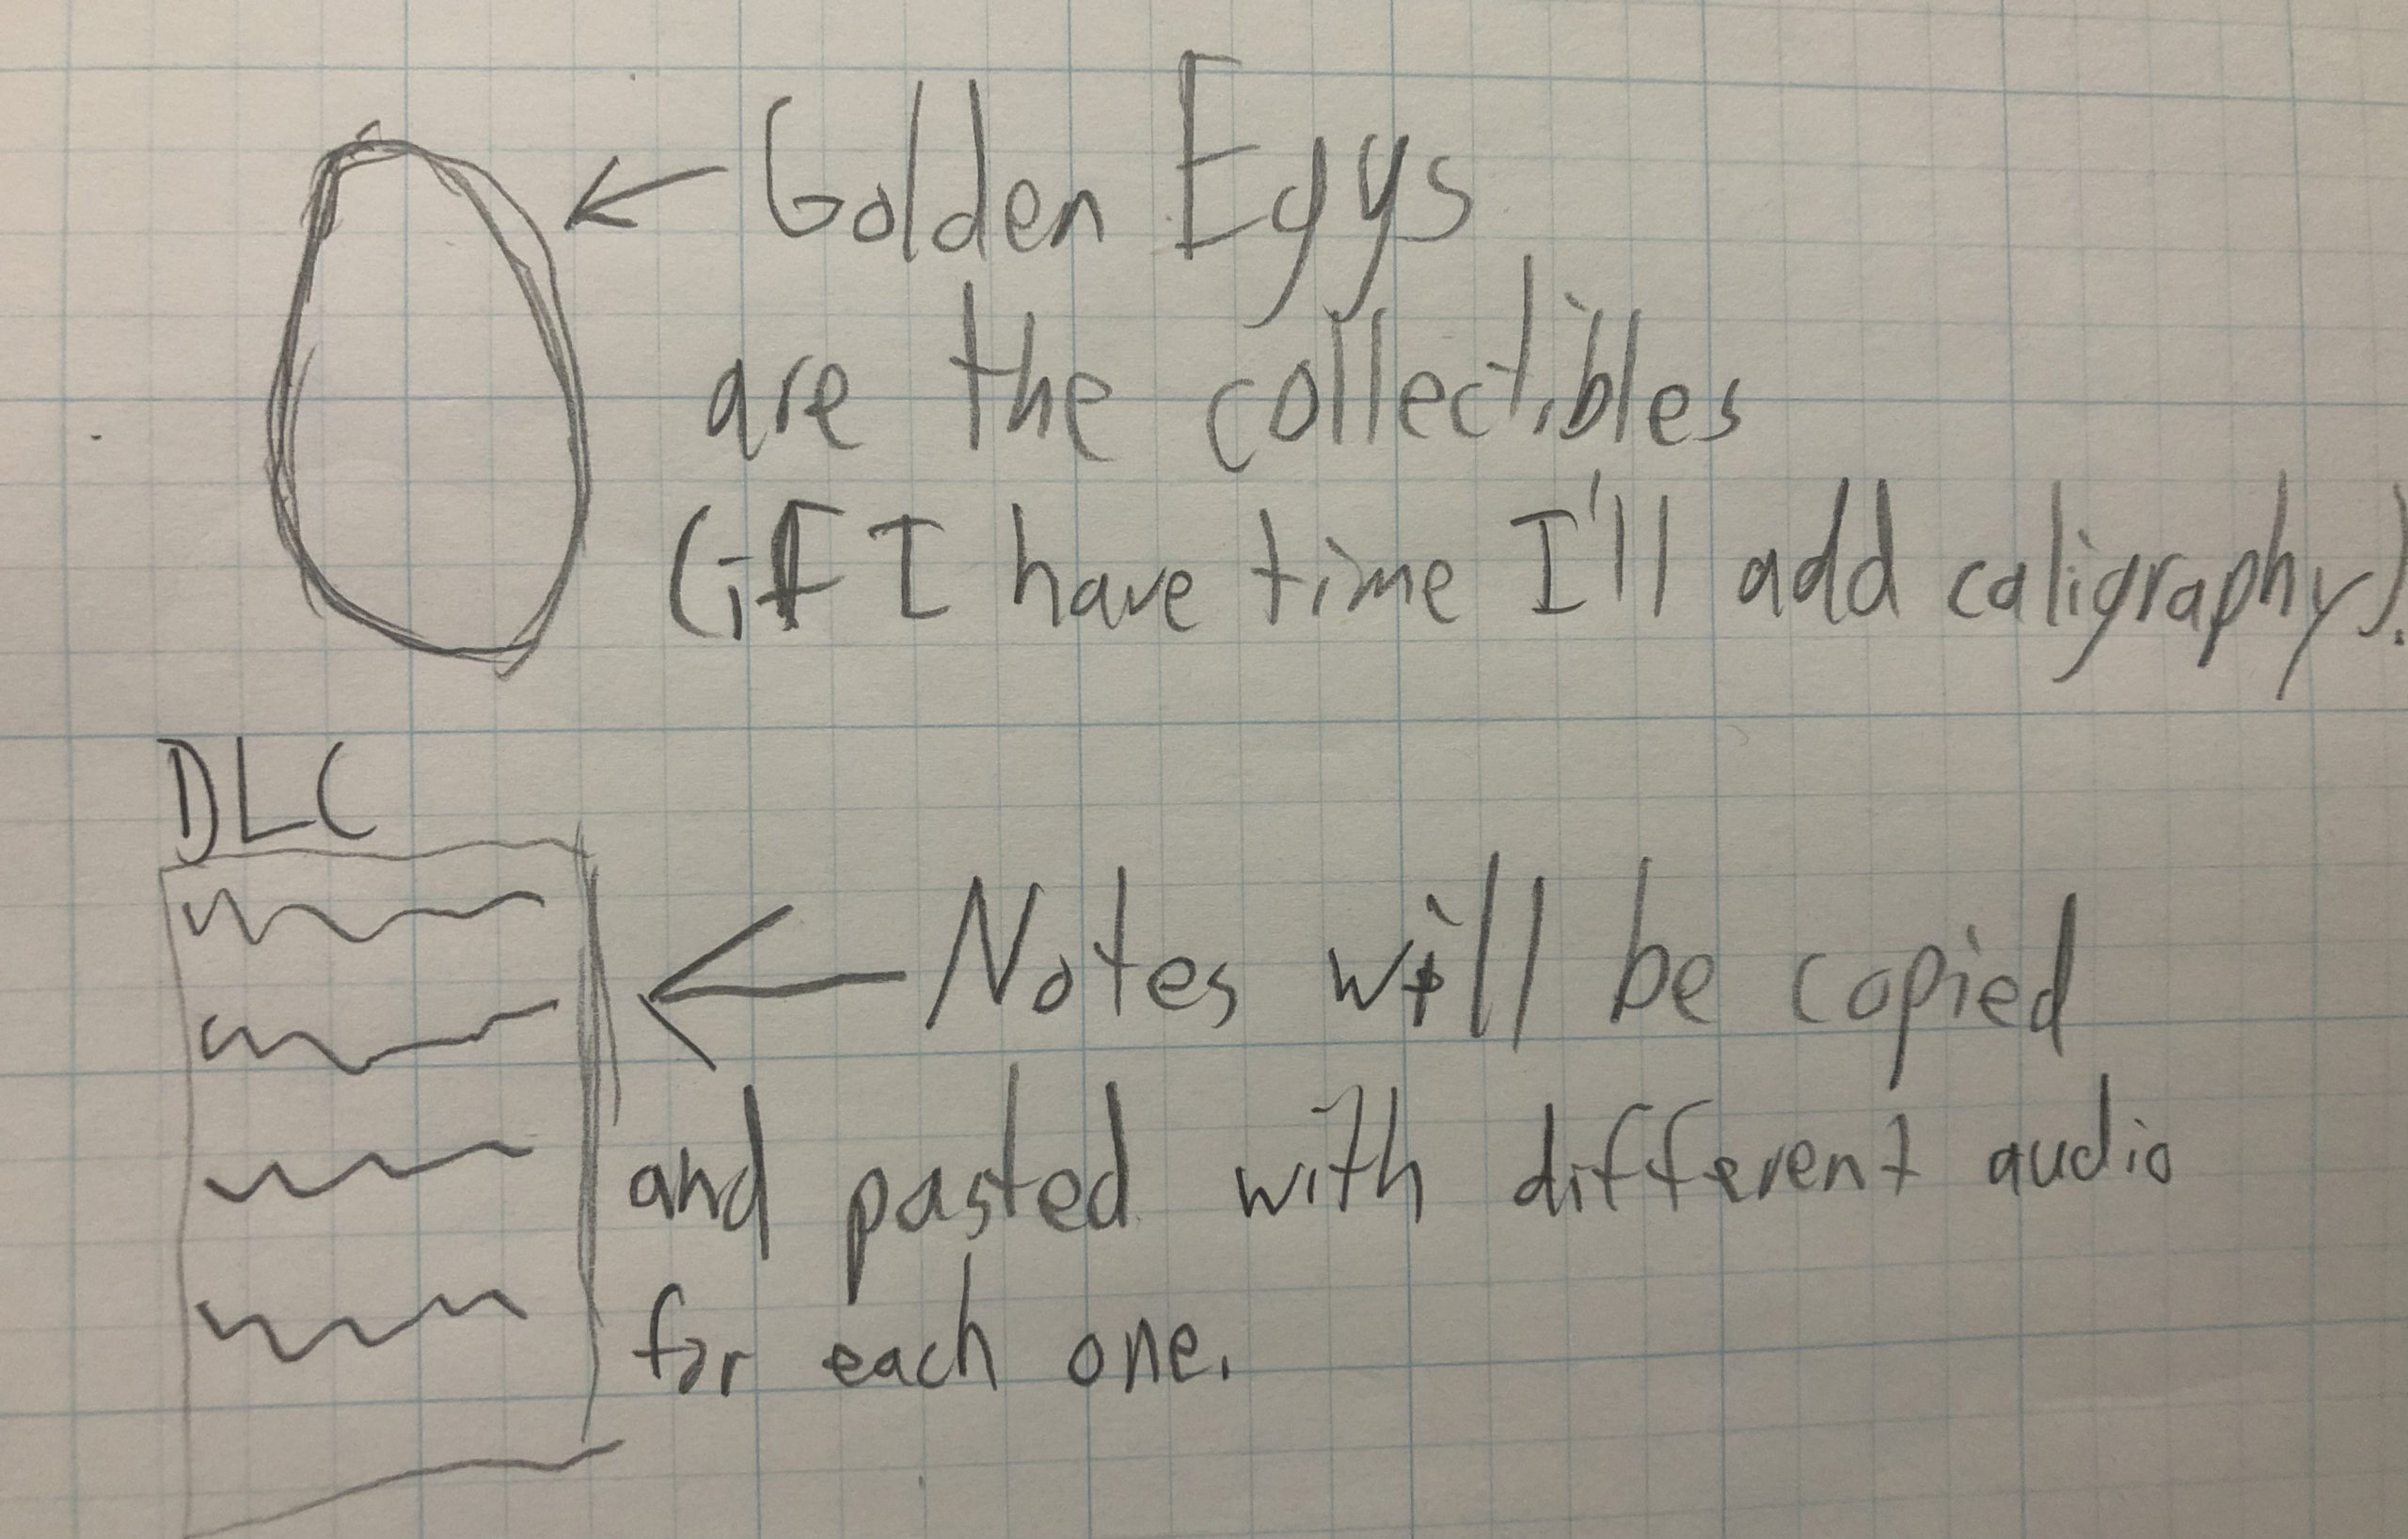 Golden Eggs
are the collectibles
(if I have time I'll add caligraphy).
DLC
Notes will be copied
and pasted with different audio
for each one.